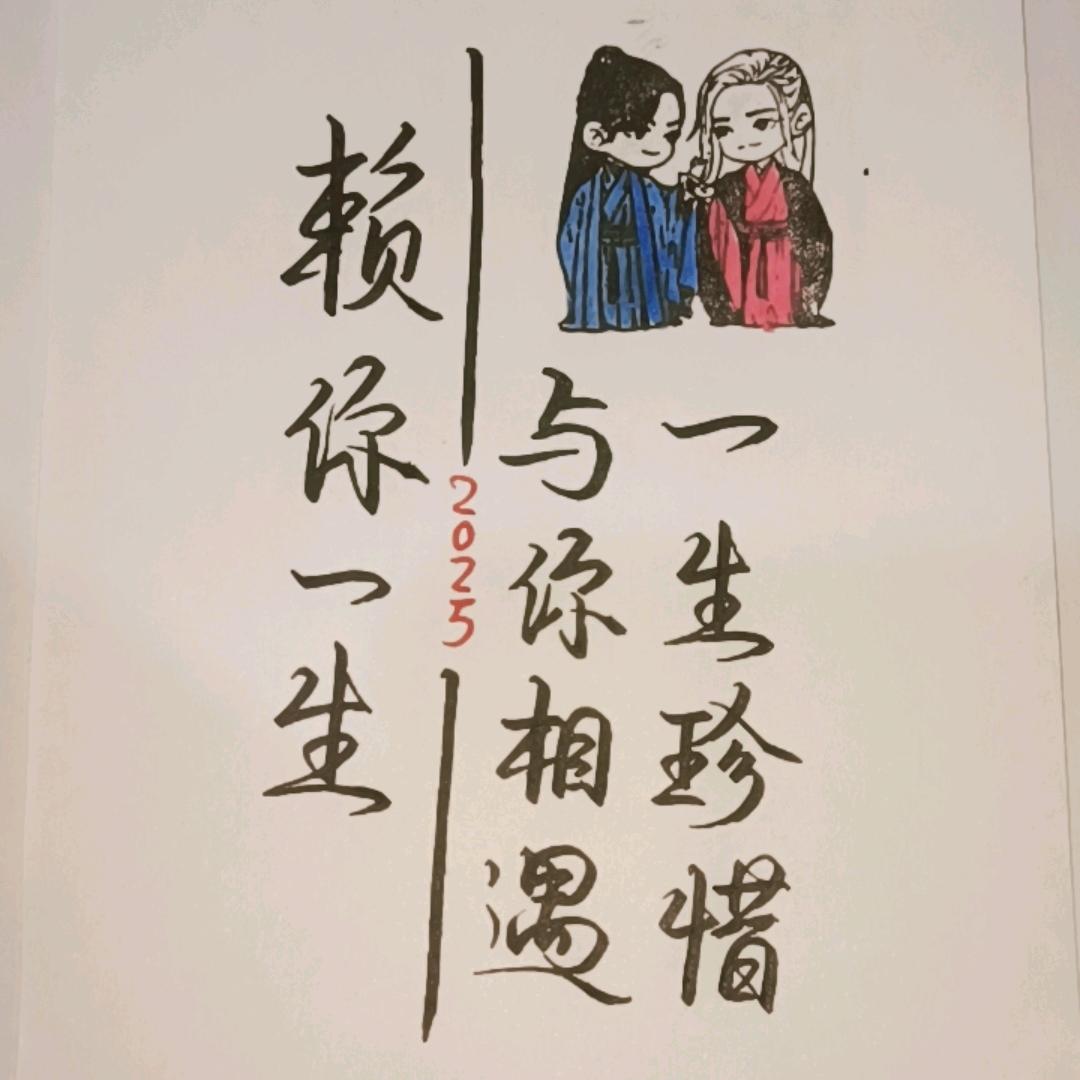 一生珍惜
与你相遇
2025
赖你一生